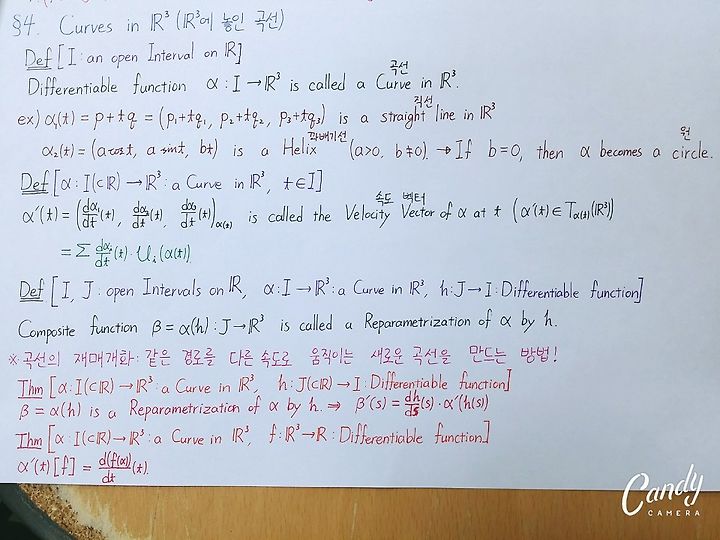 §4. Curves in ℝ³ (ℝ³에 놓인 곡선)
Def [I : an open Interval on ℝ]
곡선
Differentiable function α : I → ℝ³ is called a Curve in ℝ³.
직선
ex) α₁(t) = p + tq = (p₁+tq₁, p₂+tq₂, p₃+tq₃) is a straight line in ℝ³
꽈배기선 원
α₂(t) = (a cos t, a sin t, bt) is a Helix (a>0, b≠0). → If b=0, then α becomes a circle.
Def [α : I(⊂ℝ) → ℝ³ : a Curve in ℝ³, t∈I]
속도 벡터
α′(t) = (dα₁/dt(t), dα₂/dt(t), dα₃/dt(t))_α(t) is called the Velocity Vector of α at t (α′(t) ∈ T_α(t)(ℝ³))
= Σ dαᵢ/dt(t) · Uᵢ(α(t))
Def [I, J : open Intervals on ℝ, α : I → ℝ³ : a Curve in ℝ³, h : J → I : Differentiable function]
Composite function β = α(h) : J → ℝ³ is called a Reparametrization of α by h.
※ 곡선의 재매개화 : 같은 경로를 다른 속도로 움직이는 새로운 곡선을 만드는 방법!
Thm [α : I(⊂ℝ) → ℝ³ : a Curve in ℝ³, h : J(⊂ℝ) → I : Differentiable function]
β = α(h) is a Reparametrization of α by h. ⇒ β′(s) = dh/ds(s) · α′(h(s))
Thm [α : I(⊂ℝ) → ℝ³ : a Curve in ℝ³, f : ℝ³ → ℝ : Differentiable function]
α′(t)[f] = d(f(α))/dt(t).
Candy
CAMERA